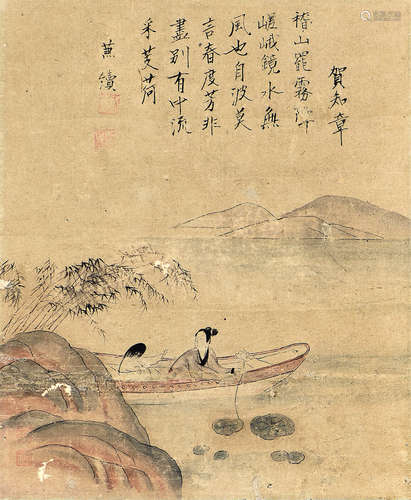 賀知章
稽山罷霧鬱
嵯峨鏡水無
風也自波莫
言春度芳菲
盡別有中流
采芰荷
蕭